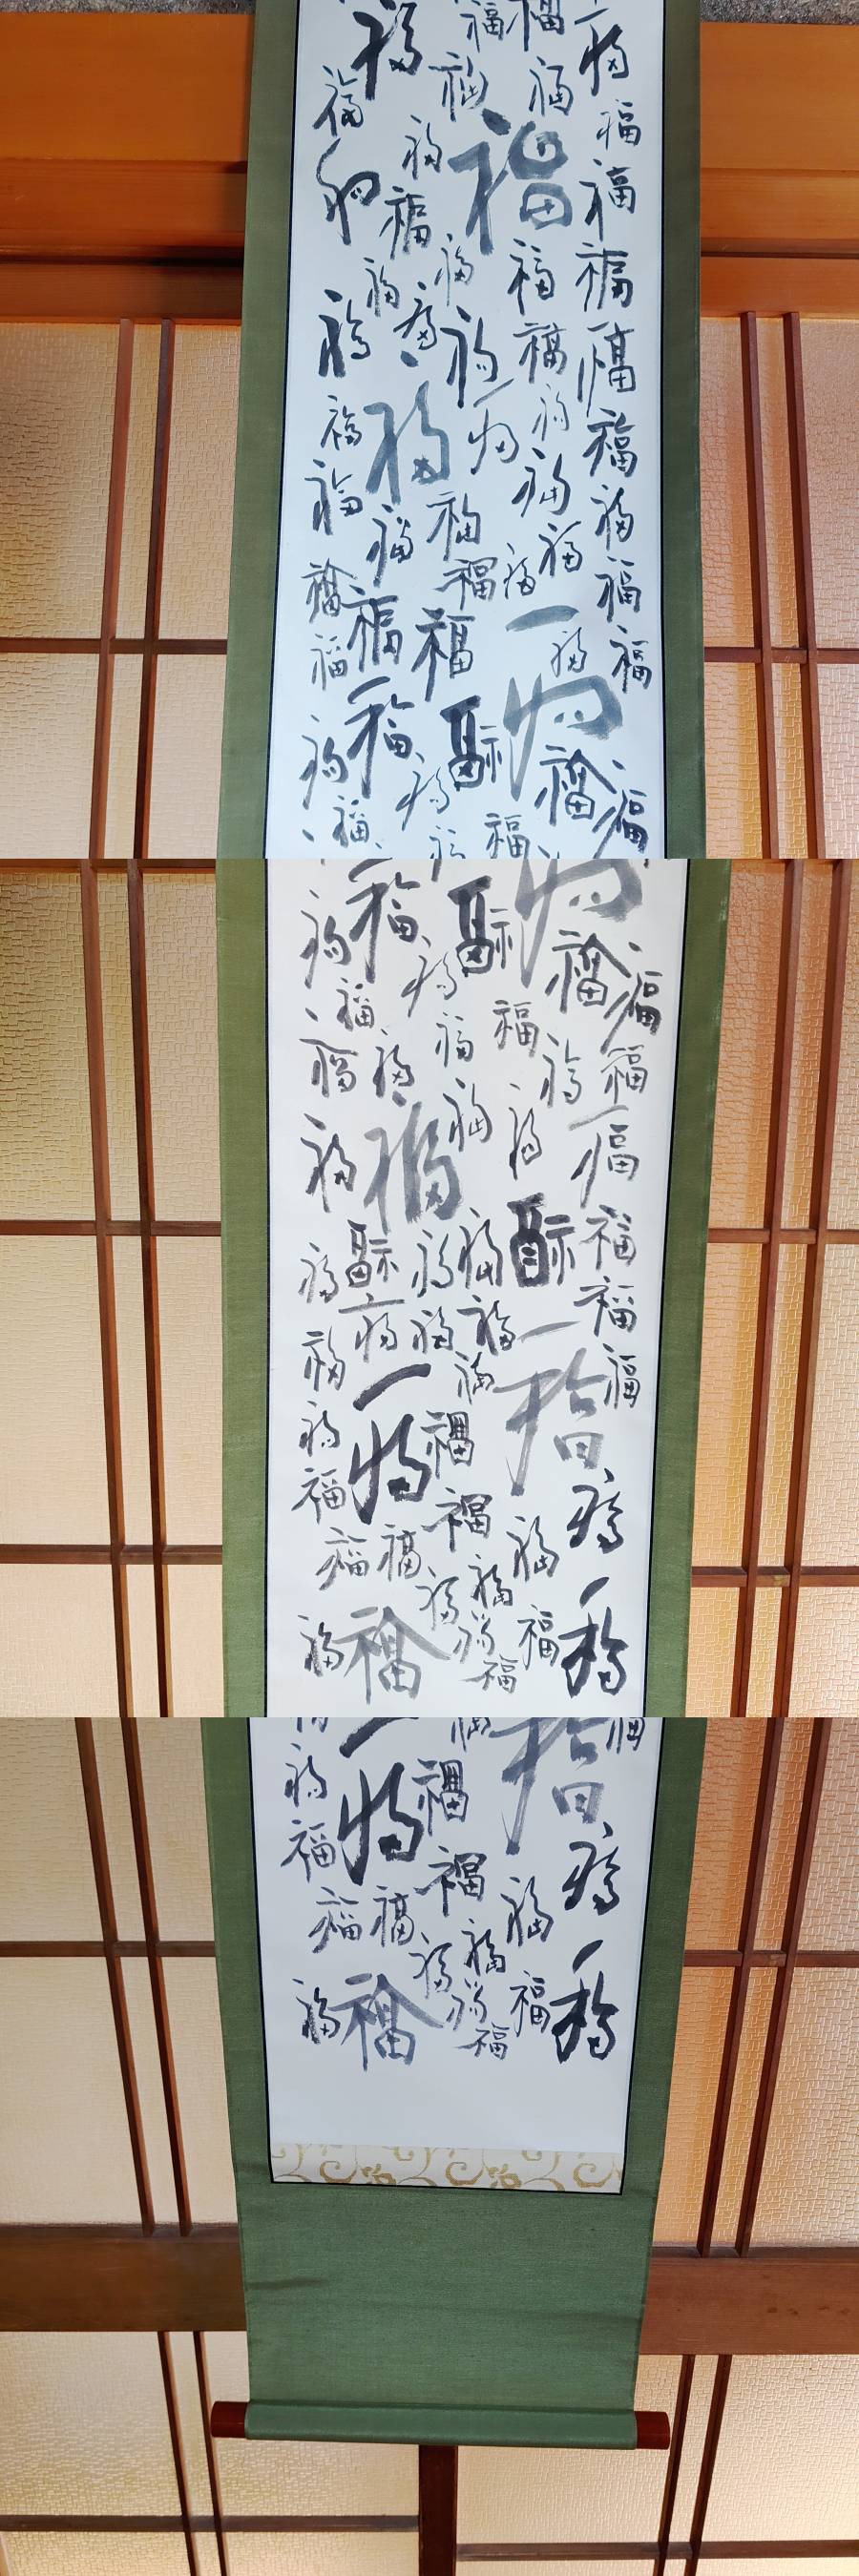 福福福福福福福福福福
福福福福福福福福福福福福福
福福福福福福福福福福福福
福福福福福福福福福
福福福福福福福福
福福福福福福福福
福福福福福福福福福
福福福福福福福福福福福福福福福
福福福福福福福福福
福福福福福福福福福
福福福
福福福
福福福福福福福
福福福
福福福福